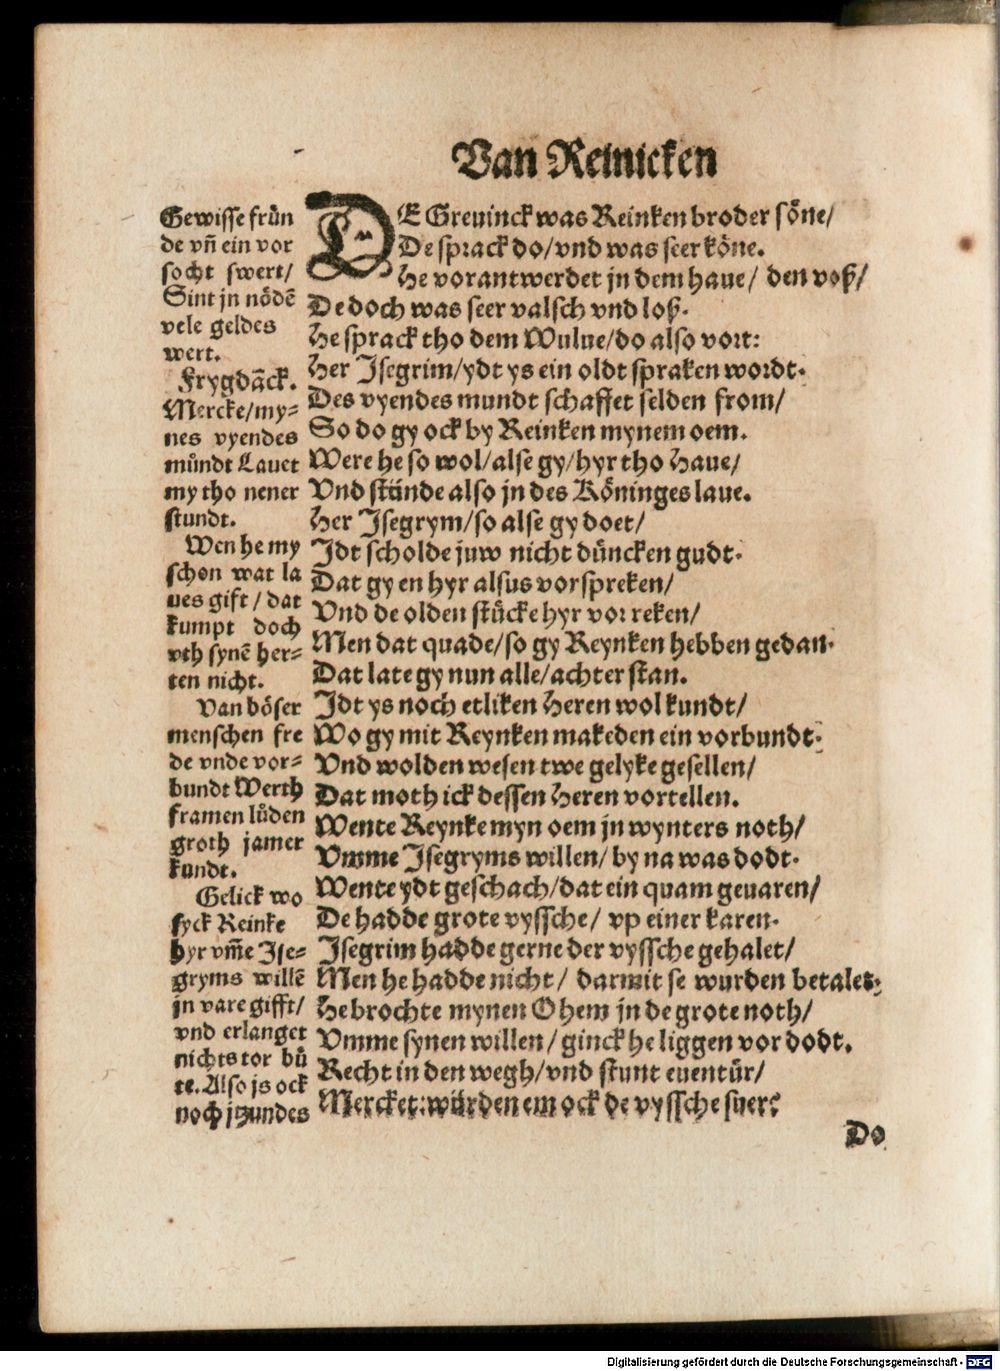 Van Reinicken
Gewisse frün
de vñ ein vor
socht swert/
Sint jn nödē
vele geldes
wert.
Frygdāck.
Mercke/my⸗
nes vyendes
mündt Lauet
my tho nener
stundt.
Wen he my
schon wat la
ues gift / dat
kumpt doch
vth synē her⸗
ten nicht.
Van böser
menschen fre
de vnde vor⸗
bundt Werth
framen lüden
groth jamer
kundt.
Gelick wo
syck Reinke
hyr vm̄e Ise⸗
gryms willē
jn vare gifft/
vnd erlanget
nichts tor bü
te. Also js ock
noch jtzundes
DE Greuinck was Reinken broder söne/
De sprack do/vnd was seer köne.
He vorantwerdet jn dem haue/ den voß/
De doch was seer valsch vnd loß.
He sprack tho dem Wulue/do also vort:
Her Isegrim/ydt ys ein oldt spraken wordt.
Des vyendes mundt schaffet selden from/
So do gy ock by Reinken mynem oem.
Were he so wol/alse gy/hyr tho Haue/
Vnd stünde also jn des Köninges laue.
Her Isegrym/so alse gy doet/
Idt scholde juw nicht düncken gudt.
Dat gy en hyr alsus vorspreken/
Vnd de olden stücke hyr vor reken/
Men dat quade/so gy Reynken hebben gedan.
Dat late gy nun alle/achter stan.
Idt ys noch etliken Heren wol kundt/
Wo gy mit Reynken makeden ein vorbundt.
Vnd wolden wesen twe gelyke gesellen/
Dat moth ick dessen Heren vortellen.
Wente Reynke myn oem jn wynters noth/
Vmme Isegryms willen/ by na was dodt.
Wente ydt geschach/dat ein quam geuaren/
De hadde grote vyssche/ vp einer karen.
Isegrim hadde gerne der vyssche gehalet/
Men he hadde nicht/ darmit se wurden betalet:
He brochte mynen Ohem jn de grote noth/
Vmme synen willen/ ginck he liggen vor dodt.
Recht in den wegh/vnd stunt euentür/
Mercket: würden em ock de vyssche suer?
Do
Digitalisierung gefördert durch die Deutsche Forschungsgemeinschaft - DFG